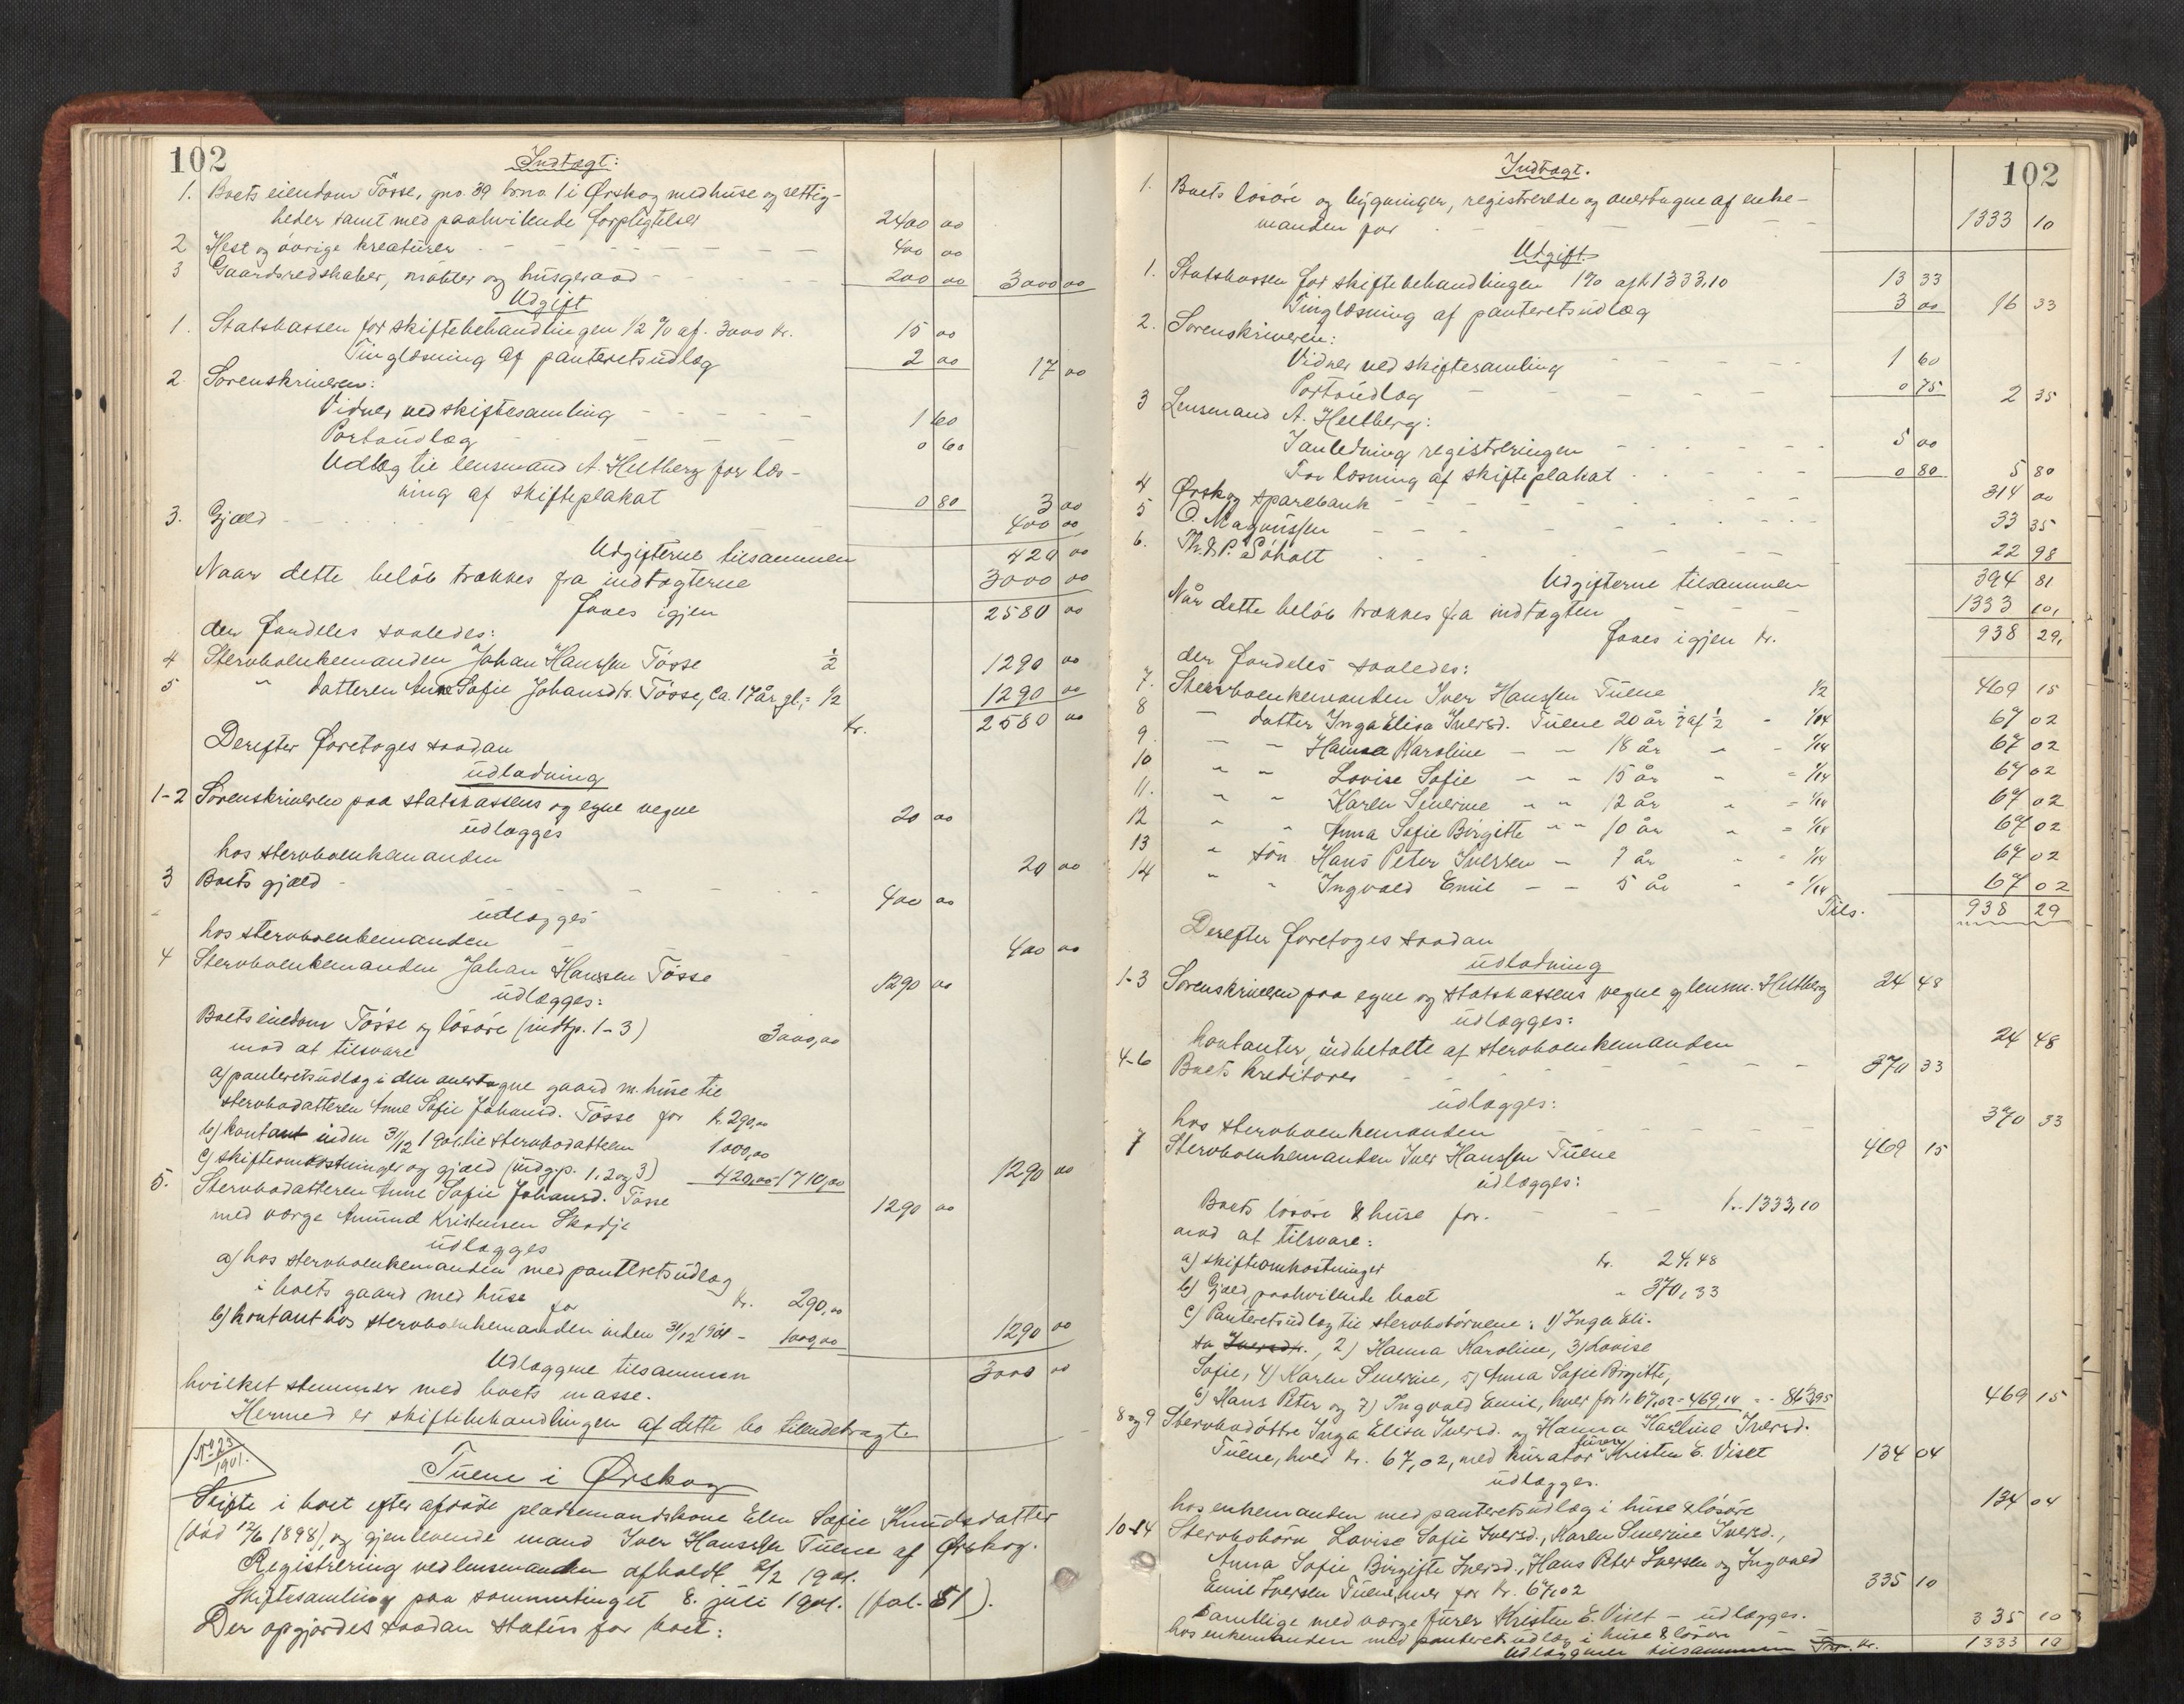 102
Indtægt:
1. Boets eiendom Tösse, gno. 39 brno. 1 i Ørskog med huse og rettig-
heder samt med paahvilende forpligtelser 2400 00
2 Hest og övrige kreaturer 400 00
3 Gaardsredskaber, möbler og husgeraad 200 00 3000 00
Udgift
1. Statskassen for skiftebehandlingen 1/2 % af 3000 kr. 15 00
Tinglæsning af panteretsudlæg 2 00 17 00
2. Sorenskriveren:
Vidner ved skiftesamling 1 60
Portoudlæg 0 60
Udlæg til lensmand A. Hultberg for læs-
ning af skifteplakat 0 80 3 00
3. Gjæld 400 00
Udgifterne tilsammen 420 00
Naar dette belöb trækkes fra indtægterne 3000 00
faaes igjen 2580 00
der fordeles saaledes:
4 Stervboenkemanden Johan Hanssen Tösse 1/2 1290 00
5 " datteren Anne Sofie Johansdtr. Tösse, ca. 17 år gl. = 1/2 1290 00
kr. 2580 00
Derefter foretoges saadan
udlodning
1-2 Sorenskriveren paa statskassens og egne vegne 20 00
udlægges
hos stervboenkemanden 20 00
3 Boets gjæld 400 00
udlægges
hos stervboenkemanden 400 00
4 Stervboenkemanden Johan Hanssen Tösse 1290 00
udlægges:
Boets eiendom Tösse og lösöre (indtp. 1-3) 3000,00
mod at tilsvare
a) panteretsudlæg i den overtagne gaard m. huse til
stervbodatteren Anne Sofie Johansd. Tösse for kr. 290,00
b) kontant inden 31/12 1901 til stervbodatteren 1000,00
c) skifteomkostninger og gjæld (udg.p. 1, 2 og 3) 420,00 1710,00 1290 00
5. Stervbodatteren Anne Sofie Johansd. Tösse
med værge Amund Kristensen Skodje 1290 00
udlægges
a) hos stervboenkemanden med panteretsudlæg
i boets gaard med huse for kr. 290,00
b) kontant hos stervboenkemanden inden 31/12 1901 - 1000,00 1290 00
Udlæggene tilsammen 3000 00
hvilket stemmer med boets masse.
Hermed er skiftebehandlingen af dette bo tilendebragt
No 23/1901.
Tuene i Ørskog
Skifte i boet efter afdöde pladsemandskone Elen Sofie Knudsdatter
(död 12/6 1898), og gjenlevende mand Iver Hanssen Tuene af Ørskog.
Registrering ved lensmanden afholdt 2/2 1901.
Skiftesamling paa sommertinget 8. juli 1901. (fol. 51).
Der opgjordes saadan status for boet:
102
Indtægt.
1. Boets lösöre og bygninger, registrerede og overtagne af enke-
manden for 1333 10
Udgift
1. Statskassen for skiftebehandlingen 1% af kr 1333,10 13 33
Tinglæsning af panteretsudlæg 3 00 16 33
2. Sorenskriveren:
Vidner ved skiftesamling 1 60
Portoudlæg 0 75 2 35
3 Lensmand A. Hultberg:
I anledning registreringen 5 00
For læsning af skifteplakat 0 80 5 80
4 Ørskog sparebank 314 00
5 O. Magnussen 33 35
6. Th. & P. Söholt 22 98
Udgifterne tilsammen 394 81
Når dette belöb trækkes fra indtægten 1333 10,
faaes igjen kr. 938 29,
der fordeles saaledes:
7. Stervboenkemanden Iver Hanssen Tuene 1/2 469 15
8 " datter Inga Elisa Iversd. Tuene 20 år 1/7 af 1/2 = 1/14 67 02
9. " " Hanna Karoline " " 18 år " = 1/14 67 02
10 " " Lovise Sofie " " 15 år " = 1/14 67 02
11. " " Karen Severine " " 12 år " = 1/14 67 02
12 " " Anna Sofie Birgitte " " 10 år " = 1/14 67 02
13 " sön Hans Peter Iversen " 7 år " = 1/14 67 02
14 " " Ingvald Emil " " 5 år " = 1/14 67 02
Tils. 938 29
Derefter foretoges saadan
udlodning
1-3 Sorenskriveren paa egne og statskassens vegne og lensm. Hultberg 24 48
udlægges:
kontanter, indbetalte af stervboenkemanden 24 48
4-6 Boets kreditorer 370 33
udlægges:
hos stervboenkemanden 370 33
7 Stervboenkemanden Iver Hanssen Tuene 469 15
udlægges:
Boets lösöre & huse for kr. 1333,10
mod at tilsvare:
a) skifteomkostninger kr. 24,48
b) Gjæld, paahvilende boet " 370,33
c) Panteretsudlæg til stervbobörnene: 1) Inga Eli-
sa Iversdtr., 2) Hanna Karoline, 3) Lovise
Sofie, 4) Karen Severine, 5) Anna Sofie Birgitte,
6) Hans Peter og 7) Ingvald Emil, hver for kr 67,02 = 469,14 - - 863,95 469 15
8 og 9 Stervbodöttre Inga Elisa Iversd. og Hanna Karoline Iversd.
Tuene, hver kr. 67,02, med kurator furer Kristen E. Viset 134 04
udlægges.
hos enkemanden med panteretsudlæg i huse & lösöre 134 04
10-14 Stervbobörn Lovise Sofie Iversd., Karen Severine Iversd.,
Anna Sofie Birgitte Iversd., Hans Peter Iversen og Ingvald
Emil Iversen Tuene, hver for kr. 67,02 335 10
samtlige med værge furer Kristen E. Viset - udlægges.
hos enkemanden med panteretsudlæg i huse & lösöre 335 10
Udlæggene tilsammen kr. 1333 10